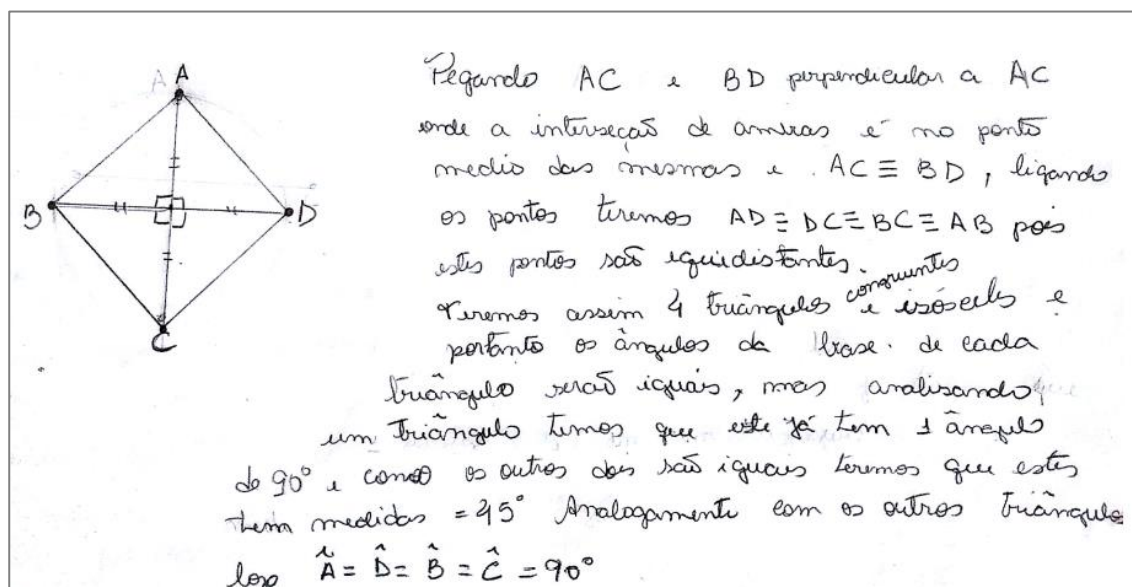 A
A
B
D
C
Pegando AC e BD perpendicular a AC
onde a interseção de ambas é no ponto
medio das mesmas e AC ≡ BD, ligando
os pontos teremos AD ≡ DC ≡ BC ≡ AB pois
estes pontos são equidistantes.
Teremos assim 4 triângulos congruentes e isósceles e
portanto os ângulos da base de cada
triângulo serão iguais, mas analisando
um triângulo temos que este já tem 1 ângulo
de 90° e como os outros dois são iguais teremos que estes
tem medidas = 45° Analogamente com os outros triângulo
logo Â = D̂ = B̂ = Ĉ = 90°